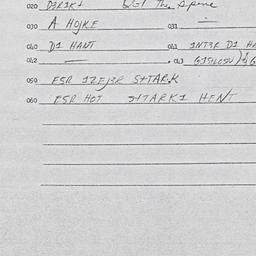 020 D3R1K+ The Spine
030 A HOJKE 031 —
040 D1 HANT 041 1NT3R D1 HA
042 — 043
050 ESR 1ZEJ3R S+TARK
060 ESR HOT S+TARK1 HENT